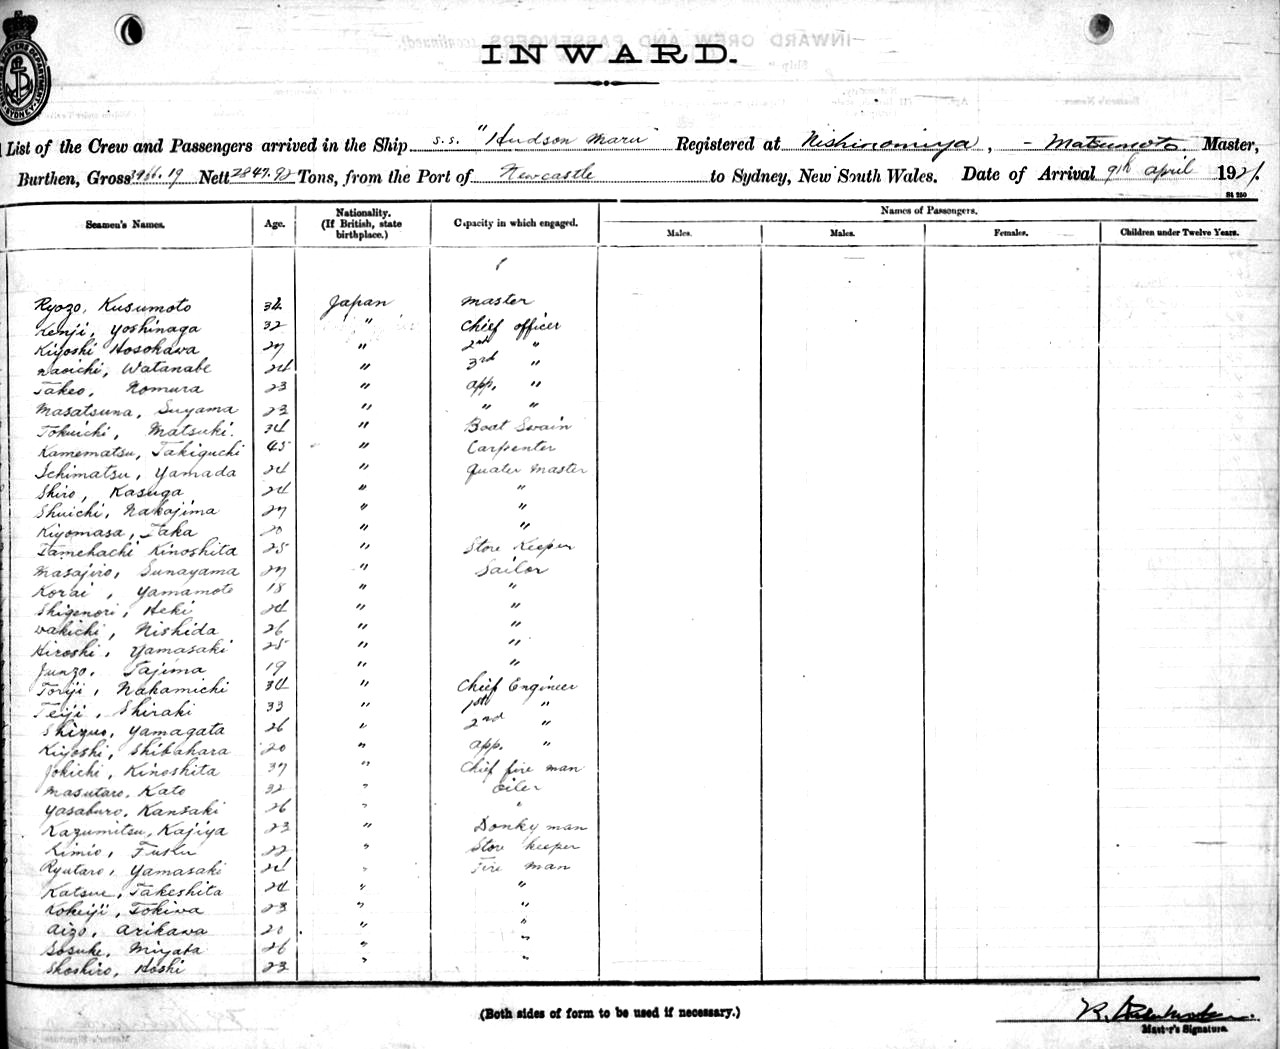 INWARD.
List of the Crew and Passengers arrived in the Ship s.s. "Hudson Maru" Registered at Nishinomiya, - Matsumoto Master,
Burthen, Gross Nett 2847.92 Tons, from the Port of Newcastle to Sydney, New South Wales. Date of Arrival 9th April 1921.
Seamen's Names. Age. Nationality. (If British, state birthplace.) Capacity in which engaged. Names of Passengers.
Males. Males. Females. Children under Twelve Years.
Ryozo, Kusumoto 34 Japan Master
Kenji, Yoshinaga 32 " Chief officer
Kiyoshi Hosokawa 27 " 2nd "
Naoichi, Watanabe 24 " 3rd "
Takeo, Nomura 23 " app. "
Masatsuna, Suyama 23 " " "
Tokuichi, Matsuki. 34 " Boat Swain
Kamematsu, Takiguchi 45 " Carpenter
Ichimatsu, Yamada 24 " Quater Master
Shiro, Kasuga 24 " "
Shuichi, Nakajima 27 " "
Kiyomasa, Taka 20 " "
Tamehachi Kinoshita 25 " Store Keeper
Masajiro, Sunayama 27 " Sailor
Korai, Yamamoto 18 " "
Shigenori, Heki 24 " "
Wakichi, Nishida 26 " "
Hiroshi, Yamasaki 25 " "
Junzo, Tajima 19 " "
Toriji, Nakamichi 34 " Chief Engineer
Teiji, Shiraki 33 " 1st "
Shizuo, Yamagata 26 " 2nd "
Kiyoshi, Shibahara 20 " app. "
Jokichi, Kinoshita 37 " Chief fire man
Masutaro, Kato 32 " Oiler
Yasaburo, Kansaki 26 " "
Kazumitsu, Kajiya 23 " Donky man
Kimio, 22 " Stor keeper
Ryutaro, Yamasaki 24 " Fire man
Katsue, Takeshita 24 " "
Koheiji, Tokiwa 23 " "
Aizo, Arikawa 20 " "
Sosuke, Miyata 26 " "
Shoshiro, Hoshi 23 " "
(Both sides of form to be used if necessary.)
Master's Signature.